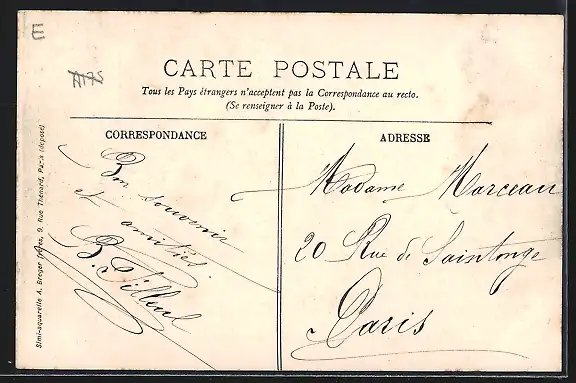 E
A175
CARTE POSTALE
Tous les Pays étrangers n'acceptent pas la Correspondance au recto.
(Se renseigner à la Poste).
CORRESPONDANCE
Bon souvenir
et amitiés.
B. Tilleul
ADRESSE
Madame Marceau
20 Rue de Saintonge
Paris
Simi-aquarelle A. Breger frères, 9, Rue Thénard, Paris (déposé)